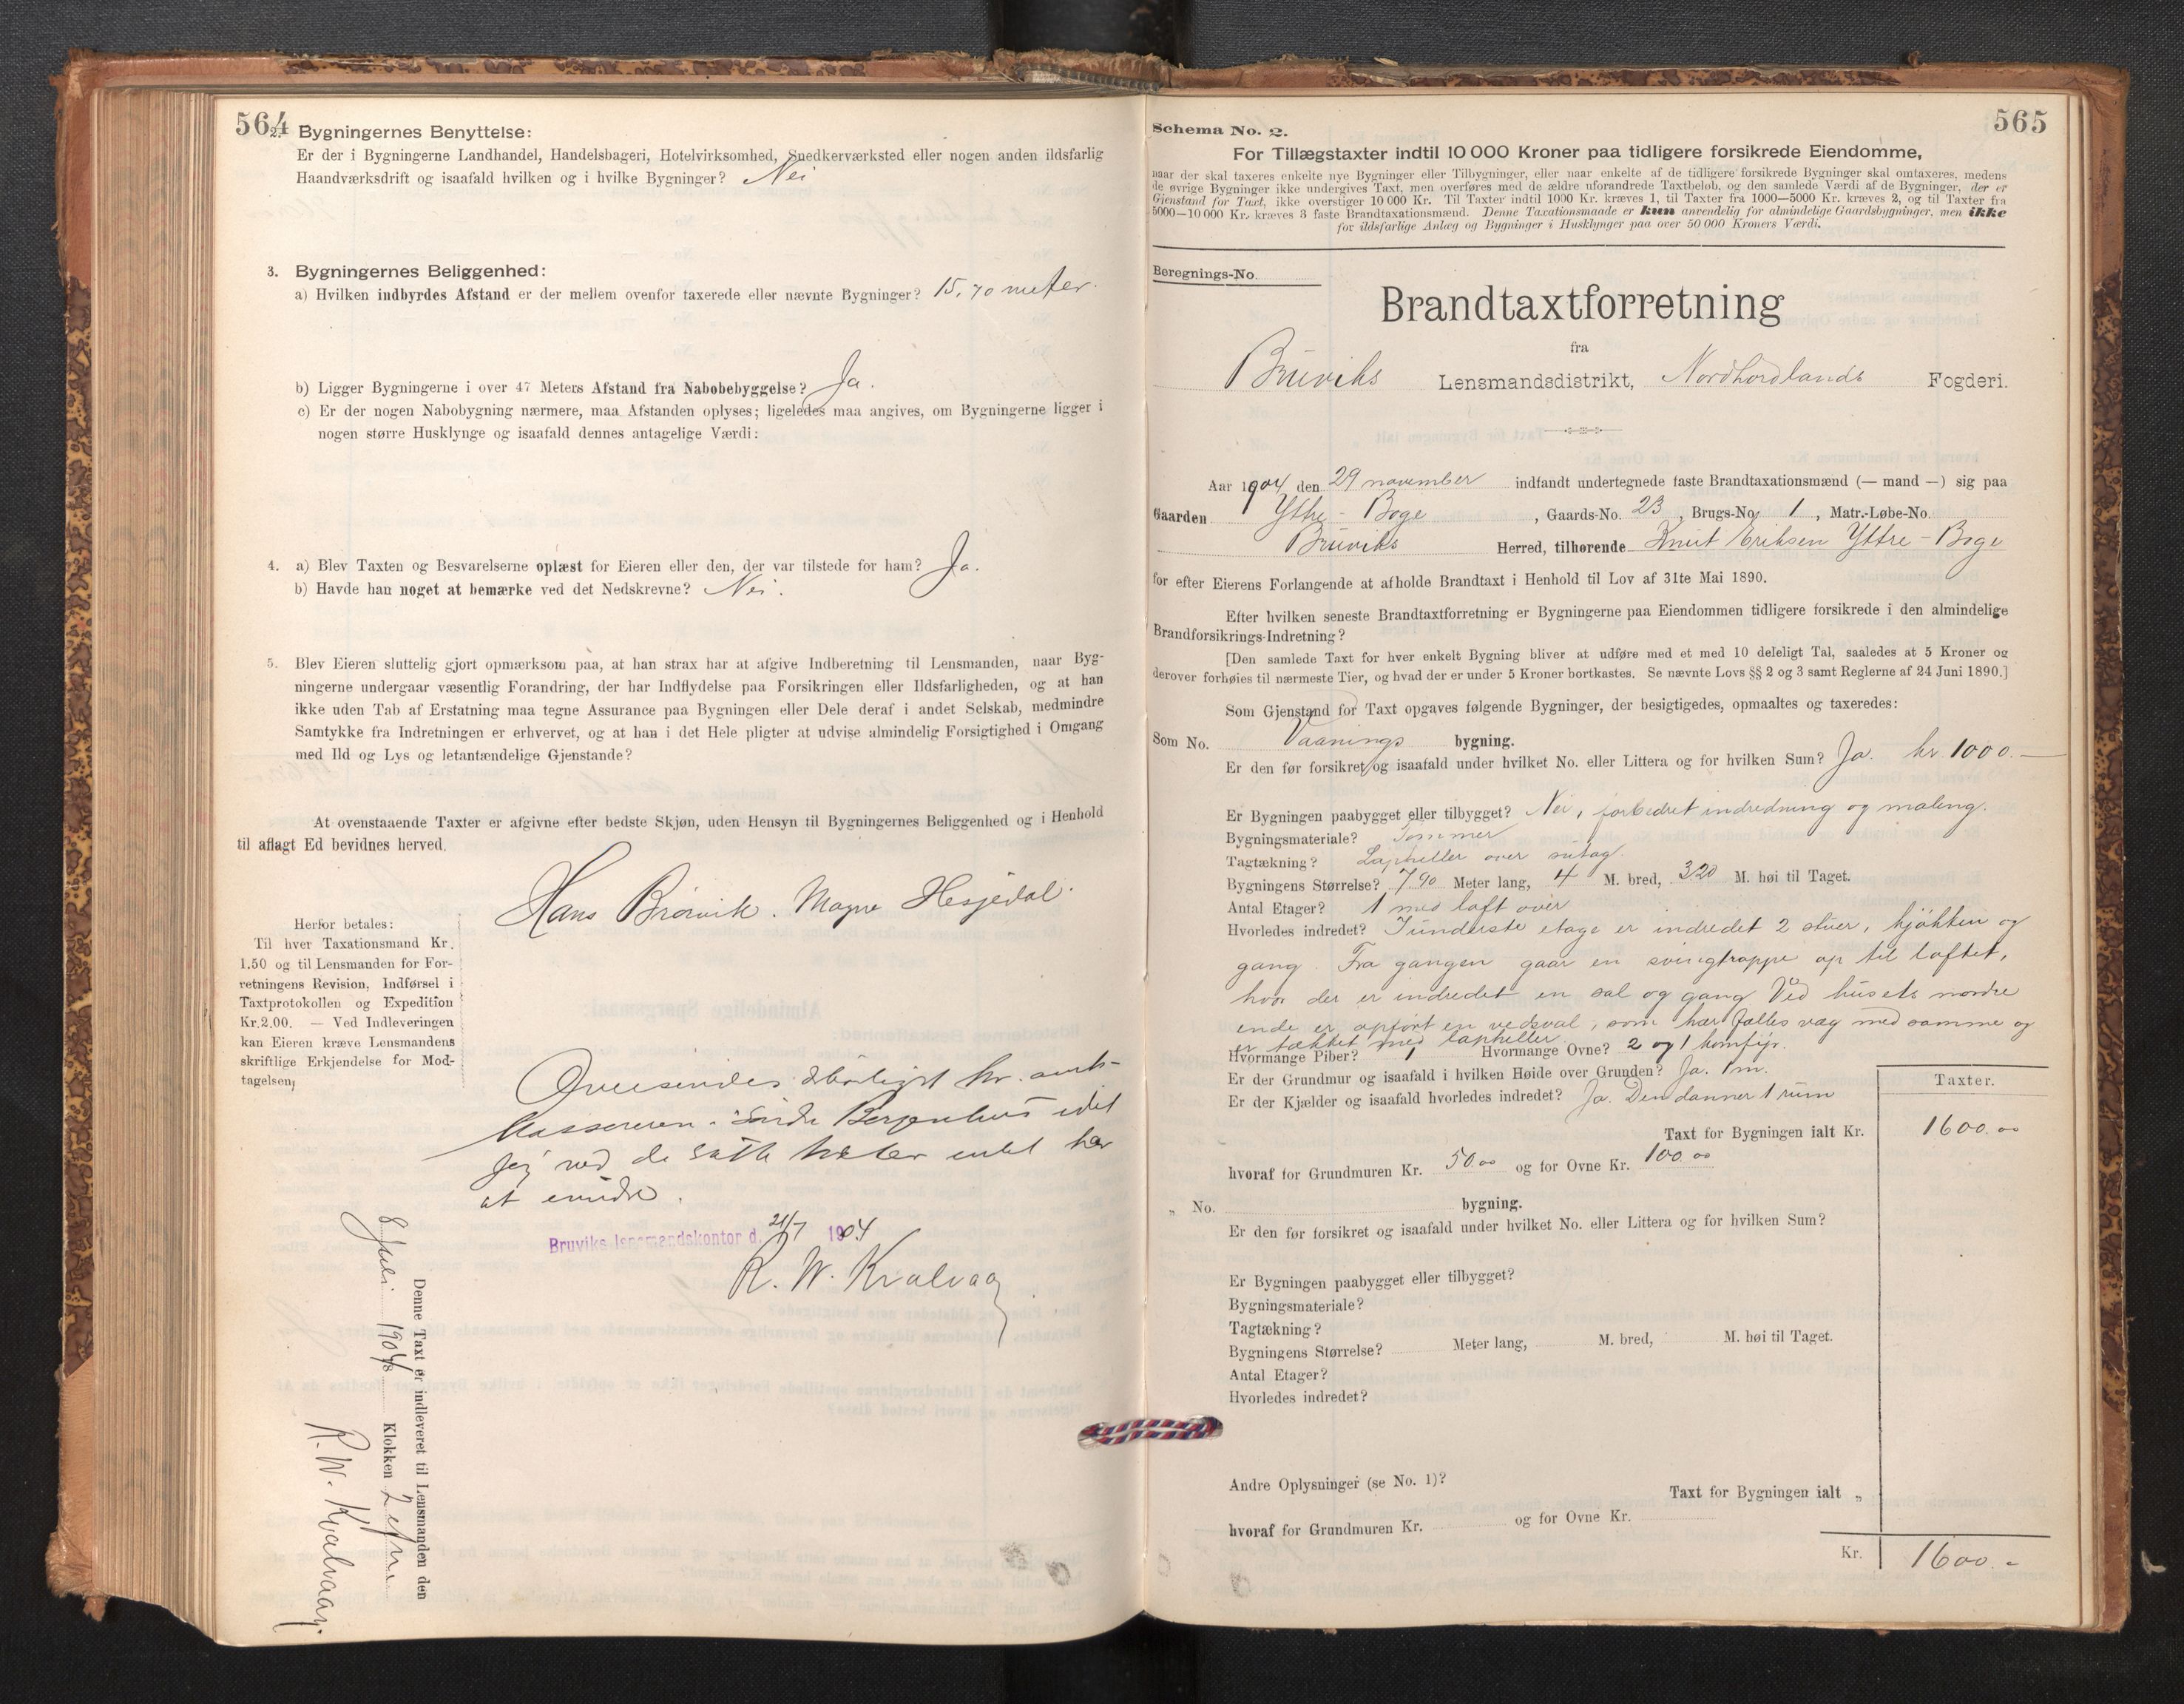 564
2. Bygningernes Benyttelse:
Er der i Bygningerne Landhandel, Handelsbageri, Hotelvirksomhed, Snedkerværksted eller nogen anden ildsfarlig
Haandværksdrift og isaafald hvilken og i hvilke Bygninger? Nei
3. Bygningernes Beliggenhed:
a) Hvilken indbyrdes Afstand er der mellem ovenfor taxerede eller nævnte Bygninger? 15,70 meter.
b) Ligger Bygningerne i over 47 Meters Afstand fra Nabobebyggelse? Ja.
c) Er der nogen Nabobygning nærmere, maa Afstanden oplyses; ligeledes maa angives, om Bygningerne ligger i
nogen større Husklynge og isaafald dennes antagelige Værdi:
4. a) Blev Taxten og Besvarelserne oplæst for Eieren eller den, der var tilstede for ham? Ja.
b) Havde han noget at bemærke ved det Nedskrevne? Nei.
5. Blev Eieren sluttelig gjort opmærksom paa, at han strax har at afgive Indberetning til Lensmanden, naar Byg-
ningerne undergaar væsentlig Forandring, der har Indflydelse paa Forsikringen eller Ildsfarligheden, og at han
ikke uden Tab af Erstatning maa tegne Assurance paa Bygningen eller Dele deraf i andet Selskab, medmindre
Samtykke fra Indretningen er erhvervet, og at han i det Hele pligter at udvise almindelig Forsigtighed i Omgang
med Ild og Lys og letantændelige Gjenstande?
At ovenstaaende Taxter er afgivne efter bedste Skjøn, uden Hensyn til Bygningernes Beliggenhed og i Henhold
til aflagt Ed bevidnes herved.
Hans Brørvik. Magne Hesjedal.
Herfor betales:
Til hver Taxationsmand Kr.
1.50 og til Lensmanden for For-
retningens Revision, Indførsel i
Taxtprotokollen og Expedition
Kr.2.00. — Ved Indleveringen
kan Eieren kræve Lensmandens
skriftlige Erkjendelse for Mod-
tagelsen,
Oversendes ærbødigst hr. amts-
kassereren i Søndre Bergenhus idet
jeg ved de satte takster intet har
at erindre.
Bruviks lensmandskontor d. 21/7 1904
R. W. Kvalvaag
Denne Taxt er indleveret til Lensmanden den
8 Juli 1904 Klokken 2 eftm.
R. W. Kvalvaag.
565
Schema No. 2.
For Tillægstaxter indtil 10 000 Kroner paa tidligere forsikrede Eiendomme,
naar der skal taxeres enkelte nye Bygninger eller Tilbygninger, eller naar enkelte af de tidligere forsikrede Bygninger skal omtaxeres, medens
de øvrige Bygninger ikke undergives Taxt, men overføres med de ældre uforandrede Taxtbeløb, og den samlede Værdi af de Bygninger, der er
Gjenstand for Taxt, ikke overstiger 10 000 Kr. Til Taxter indtil 1000 Kr. kræves 1, til Taxter fra 1000—5000 Kr. kræves 2, og til Taxter fra
5000—10 000 Kr. kræves 3 faste Brandtaxationsmænd. Denne Taxationsmaade er kun anvendelig for almindelige Gaardsbygninger, men ikke
for ildsfarlige Anlæg og Bygninger i Husklynger paa over 50 000 Kroners Værdi.
Beregnings-No.
Brandtaxtforretning
fra
Bruviks Lensmandsdistrikt, Nordhordlands Fogderi.
Aar 1904 den 29 november indfandt undertegnede faste Brandtaxationsmænd (— mand —) sig paa
Gaarden Yttre - Boge, Gaards-No. 23, Brugs-No. 1, Matr.-Løbe-No.
Bruviks Herred, tilhørende Knut Eriksen Yttre - Boge
for efter Eierens Forlangende at afholde Brandtaxt i Henhold til Lov af 31te Mai 1890.
Efter hvilken seneste Brandtaxtforretning er Bygningerne paa Eiendommen tidligere forsikrede i den almindelige
Brandforsikrings-Indretning?
[Den samlede Taxt for hver enkelt Bygning bliver at udføre med et med 10 deleligt Tal, saaledes at 5 Kroner og
derover forhøies til nærmeste Tier, og hvad der er under 5 Kroner bortkastes. Se nævnte Lovs §§ 2 og 3 samt Reglerne af 24 Juni 1890.]
Som Gjenstand for Taxt opgaves følgende Bygninger, der besigtigedes, opmaaltes og taxeredes:
Som No. Vaanings bygning.
Er den før forsikret og isaafald under hvilket No. eller Littera og for hvilken Sum? Ja. kr. 1000.—
Er Bygningen paabygget eller tilbygget? Nei, forbedret indredning og maling.
Bygningsmateriale? Tømmer
Tagtækning? Lapheller over sutag.
Bygningens Størrelse? 7.90 Meter lang, 4 M. bred, 3.20 M. høi til Taget.
Antal Etager? 1 med loft over
Hvorledes indredet? I underste etage er indredet 2 stuer, kjøkken og
gang. Fra gangen gaar en svingtrappe op til loftet,
hvor der er indredet en sal og gang. Ved husets nordre
ende er opført en vedsval, som har fælles væg med samme og
er tækket med lapheller.
Hvormange Piber? 1 Hvormange Ovne? 2 og 1 komfyr.
Er der Grundmur og isaafald i hvilken Høide over Grunden? Ja. 1 m.
Er der Kjælder og isaafald hvorledes indredet? Ja. Den danner 1 rum
Taxter.
Taxt for Bygningen ialt Kr. 1600.00
hvoraf for Grundmuren Kr. 50.00 og for Ovne Kr. 100.00
„ No. bygning.
Er den før forsikret og isaafald under hvilket No. eller Littera og for hvilken Sum?
Er Bygningen paabygget eller tilbygget?
Bygningsmateriale?
Tagtækning?
Bygningens Størrelse? Meter lang, M. bred, M. høi til Taget.
Antal Etager?
Hvorledes indredet?
Andre Oplysninger (se No. 1)?
Taxt for Bygningen ialt „
hvoraf for Grundmuren Kr. og for Ovne Kr.
Kr. 1600.-